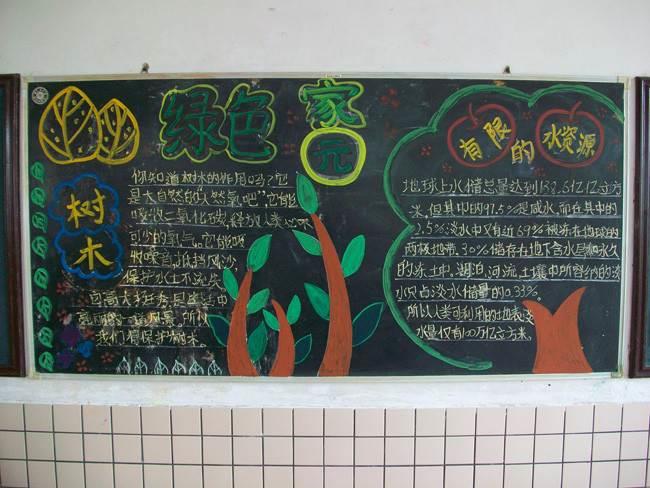 绿色家元
树木
你知道树木的作用吗?它
是大自然的"天然氧吧"它能
吸收二氧化碳,释放人类必不
可少的氧气。它能吸
收噪音,抵挡风沙,
保护水土不流失
高大
亮丽的一道风景。所以
我们要保护树木。
有限的水资源
地球上水储总量达到138.6亿亿立方
米,但其中的97.5%是咸水,而在其中的
2.5%淡水中又有近69%被冻在地球的
两极地带。30%储存在地下含水层和永久
的冻土中。湖泊、河流、土壤中所容纳的淡
水只占淡水储量的0.33%。
所以人类可利用的地表淡
水量仅有100万亿立方米。